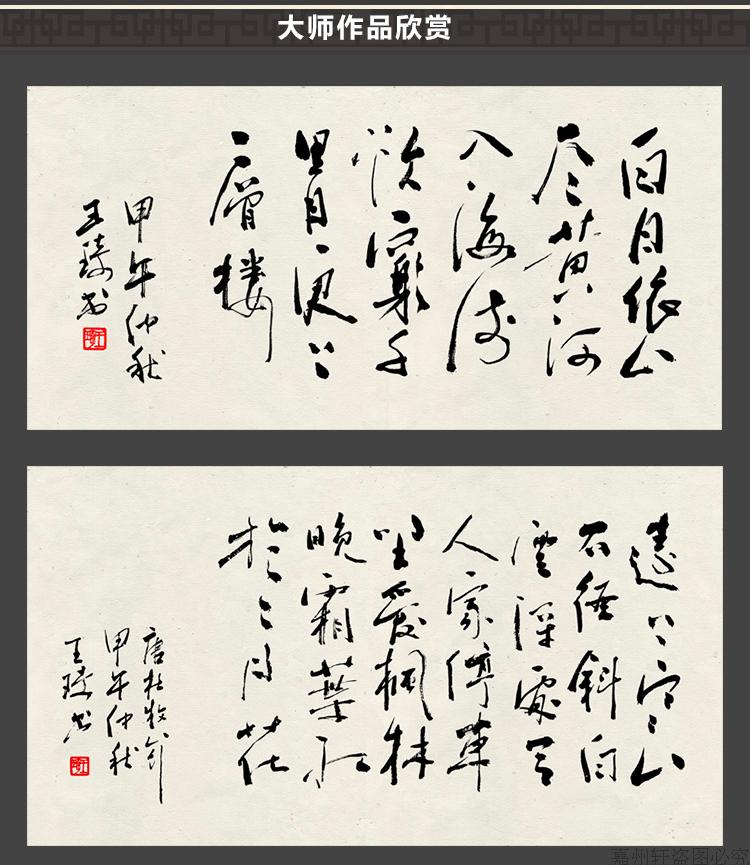 大师作品欣赏
白日依山
尽黄河
入海流
欲窮千
里目更上
一層楼
甲午仲秋
王臻书
遠上寒山
石徑斜白
雲深處有
人家停車
坐愛楓林
晚霜葉紅
於二月花
唐杜牧
甲午仲秋
王臻书
嘉州轩盗图必究